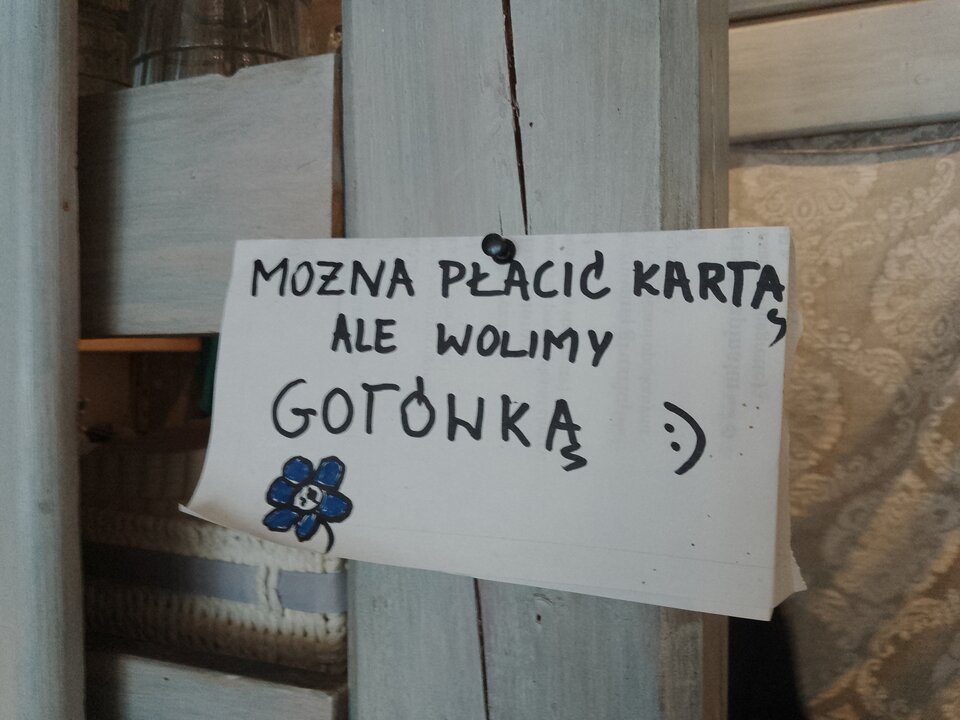 MOŻNA PŁACIĆ KARTĄ
ALE WOLIMY
GOTÓWKĄ :)